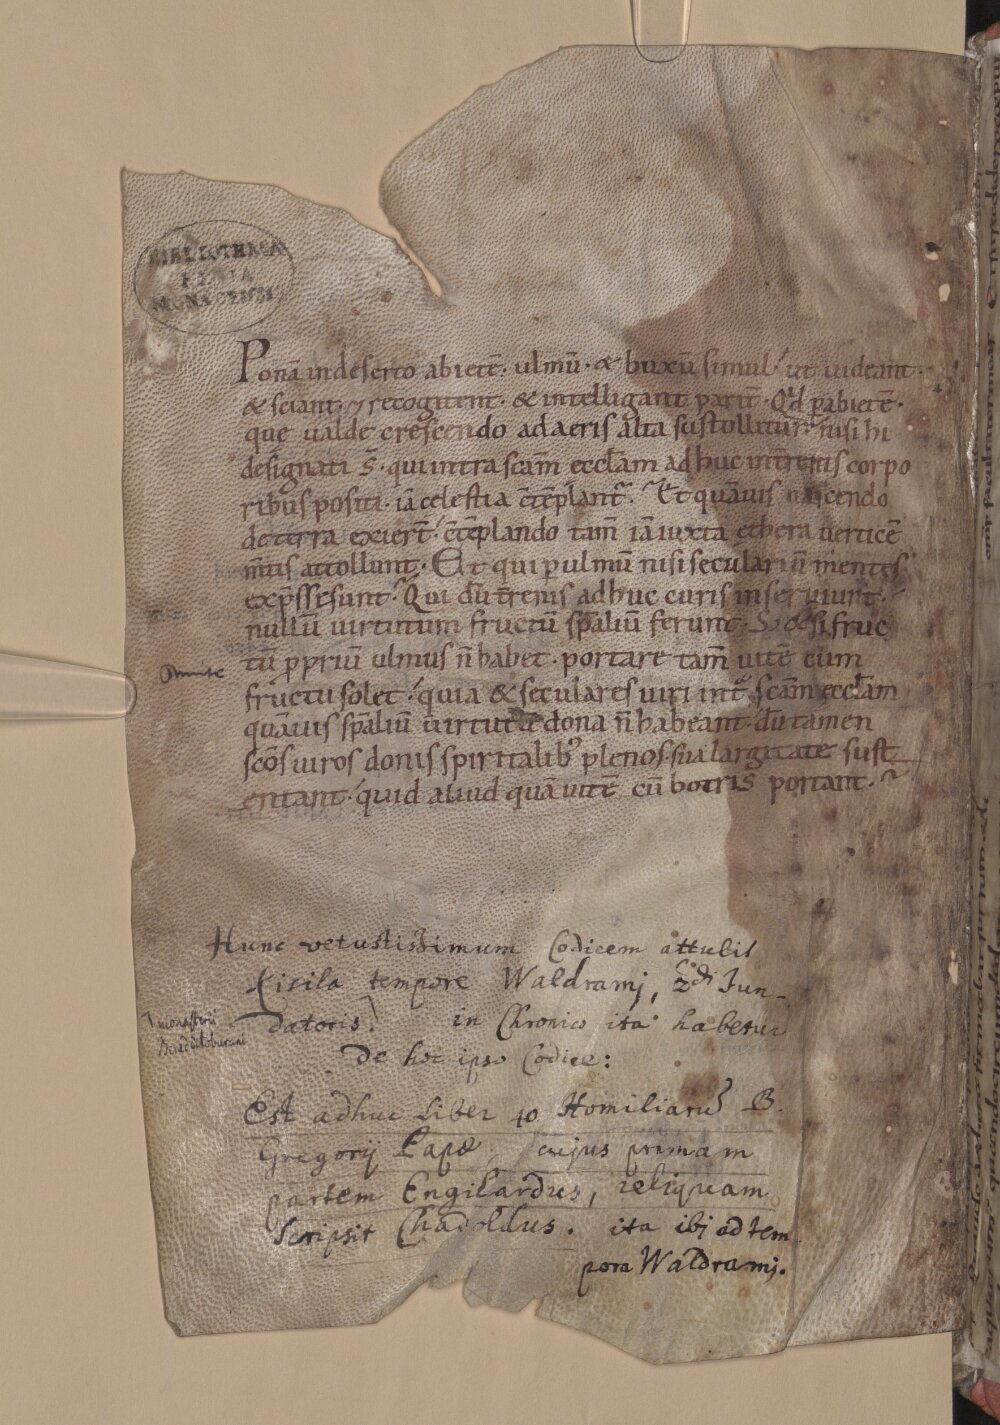 BIBLIOTHECA
REGIA
MONACENSIS
Ponā in deserto abietē. ulmū. & buxū simul. ut uideant.
& sciant, & recogitent. & intelligant parit̄. Qd̄ p̄ abietē.
que ualde crescendo ad aeris alta sustollitur. nisi hi
designati s̄. qui intra scām eccłam adhuc in t̄renis corpo
ribus positi. iā celestia c̄tēplant̄. Et quāuis nascendo
de terra exiert̄. c̄tēplando tam̄ iā iuxta ethera uerticē
m̄tis attollunt. Et qui p ulmū nisi seculariū mentes
exp̄sse sunt. Qui dū t̄renis adhuc curis inseruiunt.
nullū uirtutum fructū sp̄aliū ferunt. S; & si fruc
tū p̱priū ulmus n̄ habet. portare tam̄ uitē cum
fructu solet. quia & seculares uiri int̄ scām eccłam
quāuis sp̄aliū uirtutū dona n̄ habeant. dū tamen
scōs uiros donis spiritalib; plenos sua largitate sust
entant. quid aliud quā uitē cū botris portant.
Hunc vetustissimum Codicem attulit
Kisila tempore Waldramj, 2di Fun-
datoris. in Chronico ita habetur
monasterij
Benedictoburani
De hoc ipso Codice:
Est adhuc Liber 40 Homiliarū B.
Gregorij Papæ, cujus primam
partem Engilardus, reliquam
Scripsit Chadoldus. ita ibj ad tem
pora Waldramj.